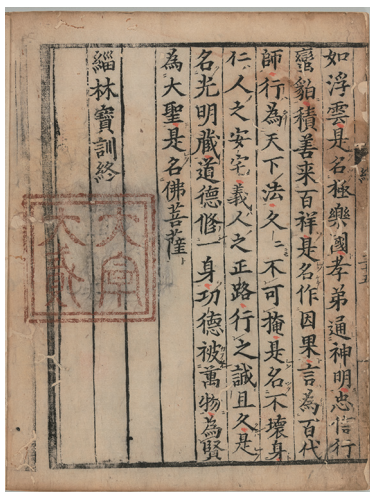 如浮雲是名極樂國孝弟通神明忠信行
蠻貊積善来百祥是名作因果言為百代
師行為天下法久〻不可掩是名不壞身
仁人之安宅義人之正路行之誠且久是
名光明藏道德修一身功德被萬物為賢
為大聖是名佛菩薩
緇林寶訓終